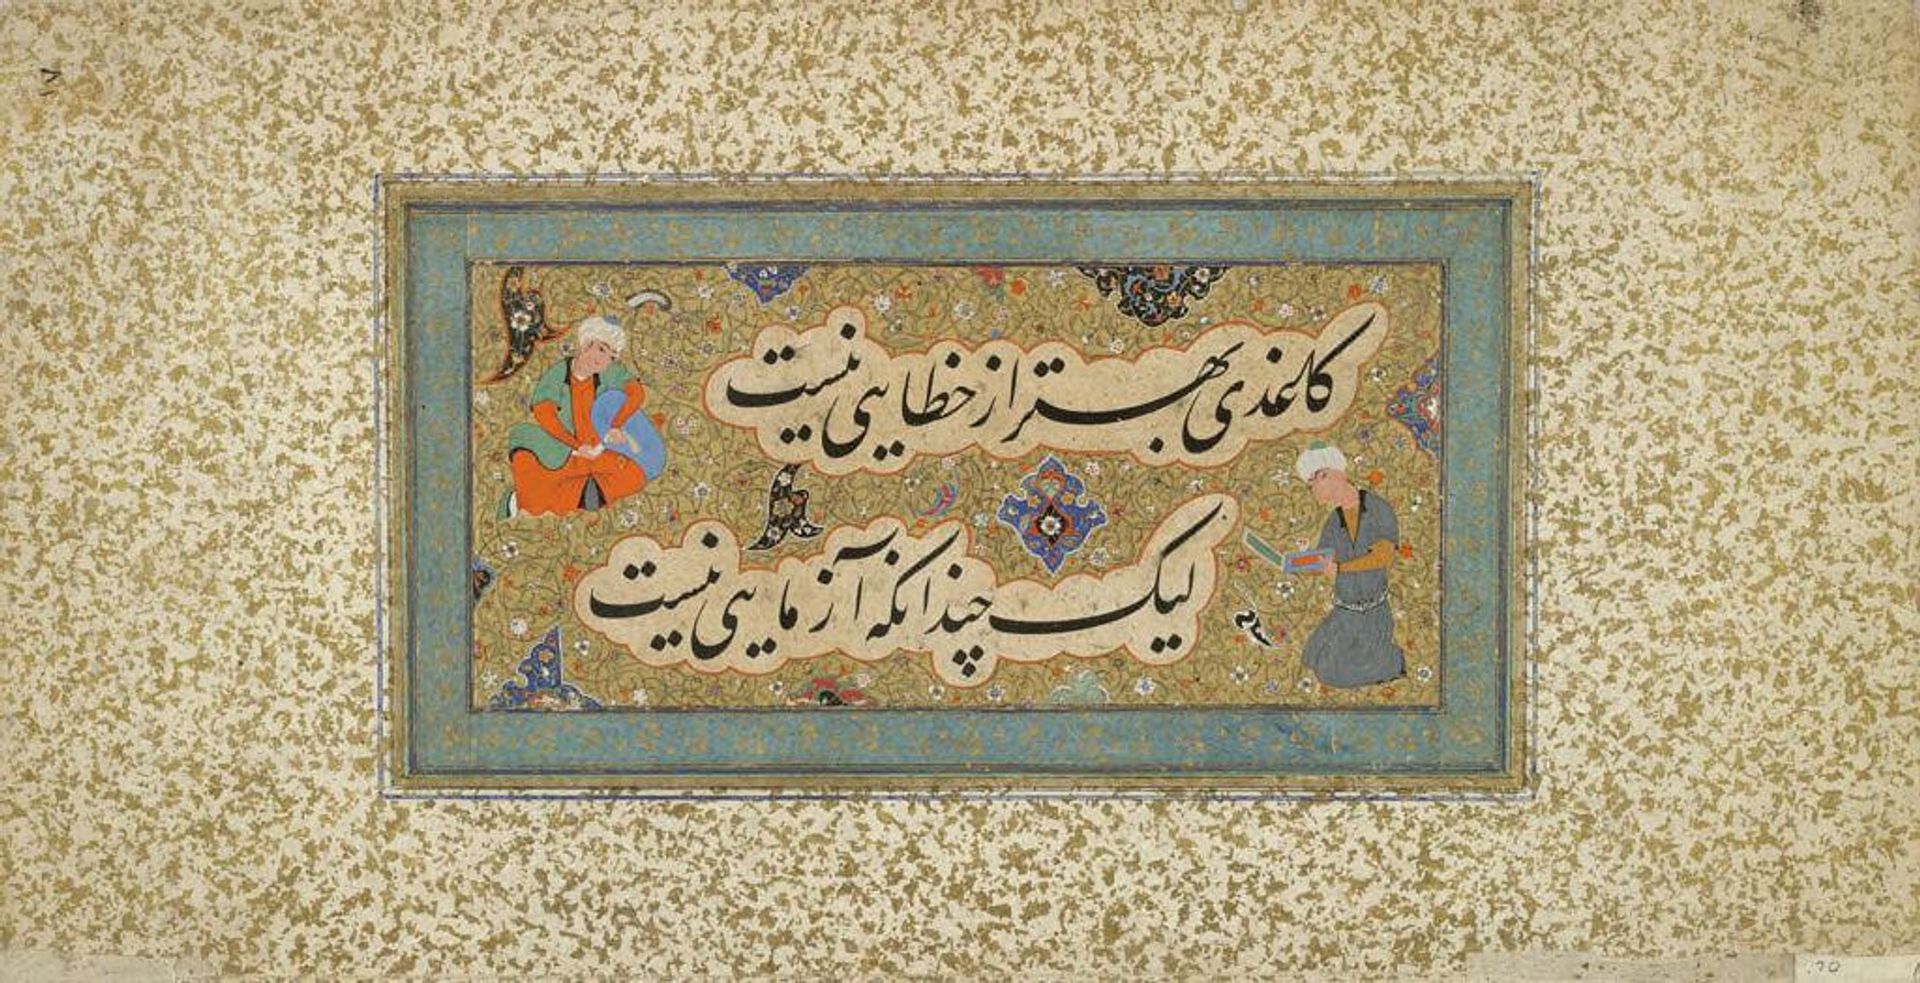 کاغذی بهتر از خطایی نیست
لیک چندانکه آزمایی نیست